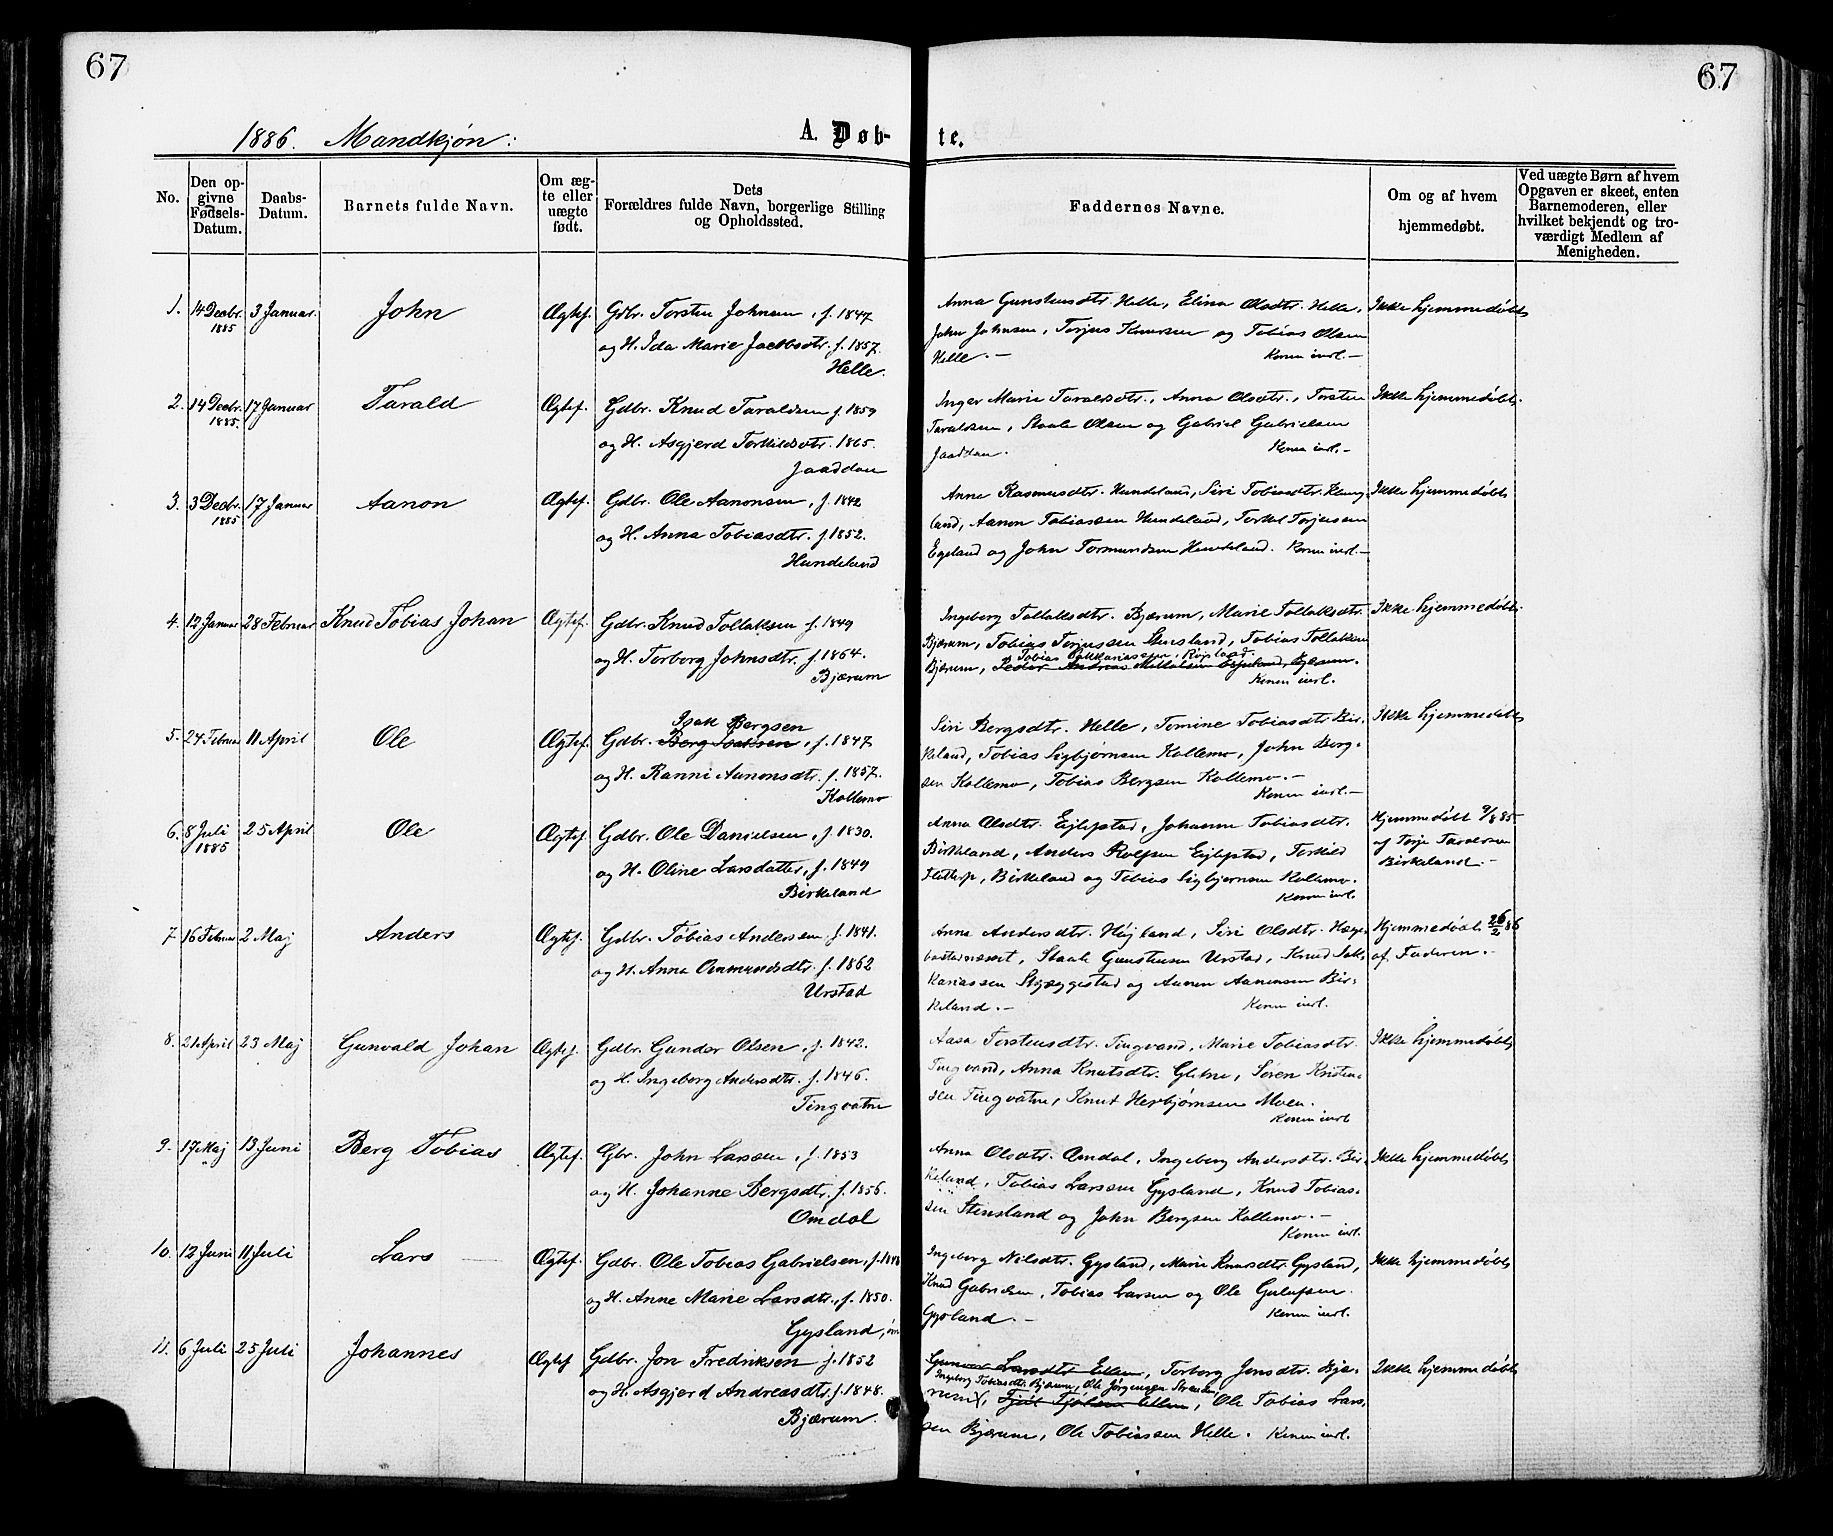 67
67
1886. Mandkjøn:
A. Døb-
te.
No.
Den opgivne Fødsels-Datum.
Daabs-Datum.
Barnets fulde Navn.
Om ægte eller uægte født.
Dets
Forældres fulde Navn, borgerlige Stilling
og Opholdssted.
Faddernes Navne.
Om og af hvem
hjemmedøbt.
Ved uægte Børn af hvem
Opgaven er skeet, enten
Barnemoderen, eller
hvilket bekjendt og tro-
værdigt Medlem af
Menigheden.
1. 14 Decbr. 1885 3 Januar. John Ægtef. Gdbr. Torsten Johnsen, f. 1847
og H. Ida Marie Jacobsdtr. f. 1857.
Helle.
Anna Gunstensdtr. Helle, Elina Olsdtr. Helle,
John Johnsen, Torjus Knursen og Tobias Olsen
Helle.—
Ikke hjemmedøbt
2. 14 Decbr. 1885. 17 Januar Tarald Ægtef. Gdbr. Knud Taraldsen f. 1859
og H. Asgjerd Torkildsdtr. 1865.
Jaaddan
Inger Marie Taraldsdtr., Anna Olsdtr., Torsten
Taraldsen, Staale Olsen og Gabriel Gabrielsen
Jaaddan.
Ikke hjemmedøbt.
3. 3 Decbr. 1885 17 Januar Aanon Ægtef. Gdbr. Ole Aanonsen, f. 1842
og H. Anna Tobiasdtr. f. 1852.
Hundeland
Anna Rasmusdtr. Hundeland, Siri Tobiasdtr.
land, Aanon Tobiassen Hundeland, Terkel Torjussen
Egeland og John Tormundsen Hundeland.
Ikke hjemmedøbt
4. 12 Januar 28 Februar Knud Tobias Johan Ægtef. Gdbr. Knud Tollaksen f. 1849
og H. Torborg Johnsdtr. f. 1864.
Bjærum
Ingeborg Tollaksdtr. Bjærum, Marie Tollaksdtr.
Bjærum, Tobias Torjussen Stensland, Tobias Tollaksen
Tobias Sakkariassen, Røjstad.
Bjærum, Peder Andreas
Ikke hjemmedøbt.
5. 24 Februar 11 April Ole Ægtef. Isak Bergsen
Gdbr. Berg Isaksen, f. 1847
og H. Ranni Aanonsdtr. f. 1857.
Kollemo
Siri Bergsdtr. Helle, Tomine Tobiasdtr Bir-
keland, Tobias Sigbjørnsen Kollemo, John Berg-
sen Kollemo, Tobias Bergsen Kollemo.—
Ikke hjemmedøbt
6. 8 Juli 1885 25 April Ole Ægtef. Gdbr. Ole Danielsen, f. 1830.
og H. Oline Larsdatter, f. 1849
Birkeland
Anna Olsdtr. Eglefstad, Johanne Tobiasdtr.
Birkeland, Anders Rolfsen Eglefstad, Terkild
Birkeland og Tobias Sigbjørnsen Kollemo.
Hjemmedøbt 9/8 85
af Terje
Birkeland.—
7 16 Februar 2 Maj Anders Ægtef. Gdbr. Tobias Andersen, f. 1841.
og H. Anna Ommundsdtr. f. 1862
Urstad
Anna Andersdtr. Højland, Siri Olsdtr. Hæge-
bostadnæset, Staale Gunstensen Urstad, Knud Sak-
kariassen Skjæggestad og Aanon Aanonsen Bir-
keland.—
Hjemmedøbt 26/2 86
af Faderen.—
8. 21 April 23 Maj Gunvald Johan Ægtef. Gdbr. Gunder Olsen, f. 1842.
og H. Ingeborg Andersdtr. f. 1846.
Tingvatne
Aasa Torstensdtr. Tingvand, Marie Tobiasdtr.
Tingvand, Anna Knutsdtr. Gletne, Søren Kristen-
sen Tingvatne, Knut Herbjørnsen Moen.
Ikke hjemmedøbt
9. 17 Maj 13 Juni Berg Tobias Ægtef. Gbr. John Larsen, f. 1853
og H. Johanne Bergsdtr. f. 1856.
Omdal
Anna Olsdtr. Omdal, Ingeborg Andersdtr. Bir-
keland, Tobias Larsen Gysland, Knud Tobias-
sen Stensland og John Bergsen Kollemo.—
Ikke hjemmedøbt
10. 12 Juni 11 Juli Lars Ægtef. Gdbr. Ole Tobias Gabrielsen, f. 1848
og H. Anne Marie Larsdtr., f. 1850.
Gysland,
Ingeborg Nilsdtr. Gysland, Marie Knudsdtr. Gysland,
Knud Gabrielsen, Tobias Larsen og Ole Gulufsen
Gysland.—
Ikke hjemmedøbt
11. 6 Juli 25 Juli Johannes Ægtef Gdbr. Jon Fredriksen f. 1852
og H. Asgjerd Andreasdtr. f. 1848.
Bjærum.
Gunvor Larsdtr Ellen, Torborg Jensdtr. Bjæ-
Ingeborg Tobiasdtr. Bjærum, Ole Jørgensen
rum, Ellen, Ole Tobias Lars-
sen Bjærum, Ole Tobiassen Helle.
Ikke hjemmedøbt